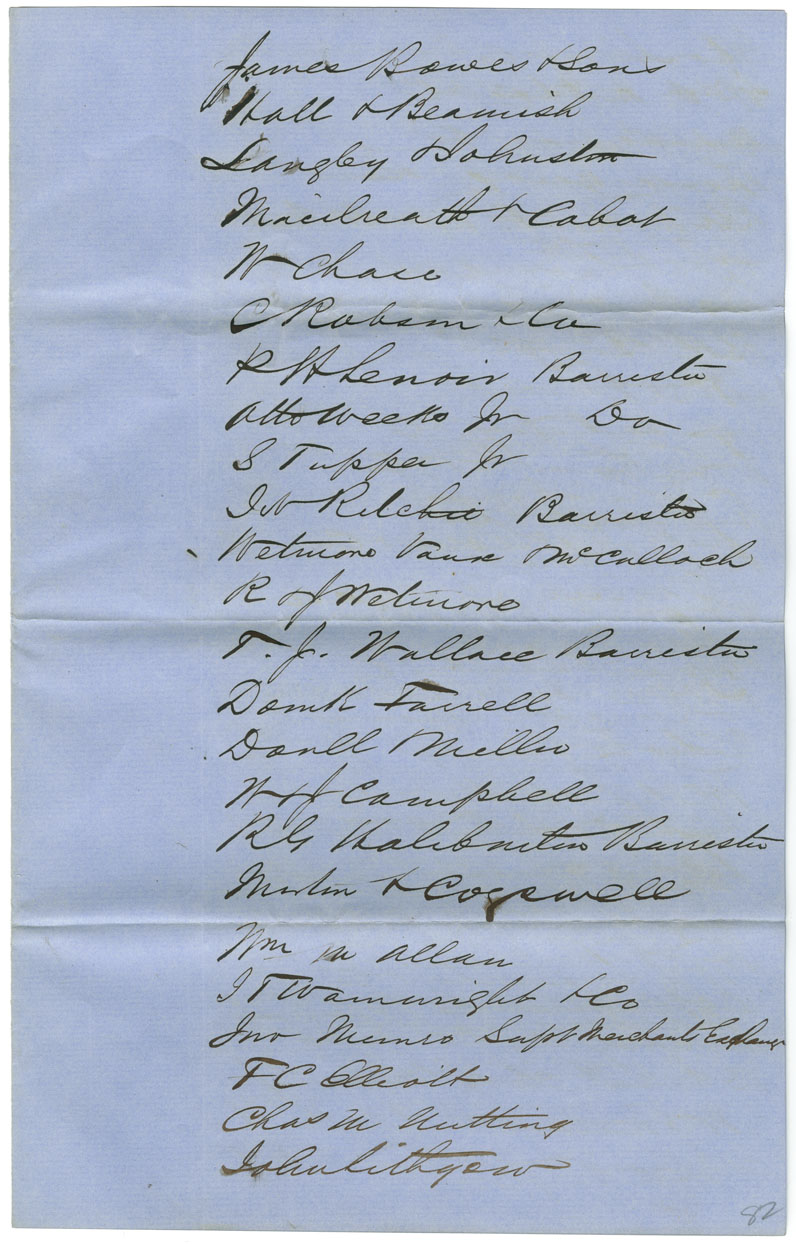 James Bowes & Sons
Hall & Beamish
Langley & Johnston
Macilreath & Cabot
W Chase
C Robson & Co
P H Lenoir Barrister
Otto Weeks Jr Do
S Tupper Jr
J W Ritchie Barrister
Wetmore Vaux & McCulloch
R & J Wetmore
T. J. Wallace Barrister
Domk Farrell
Miller
W & J Campbell
R G Haliburton Barrister
& Cogswell
Wm M Allan
J T Wainwright & Co
Jno Munro Supt Merchants Exchange
F C Elliott
Chas M Nutting
John Lithgow
82